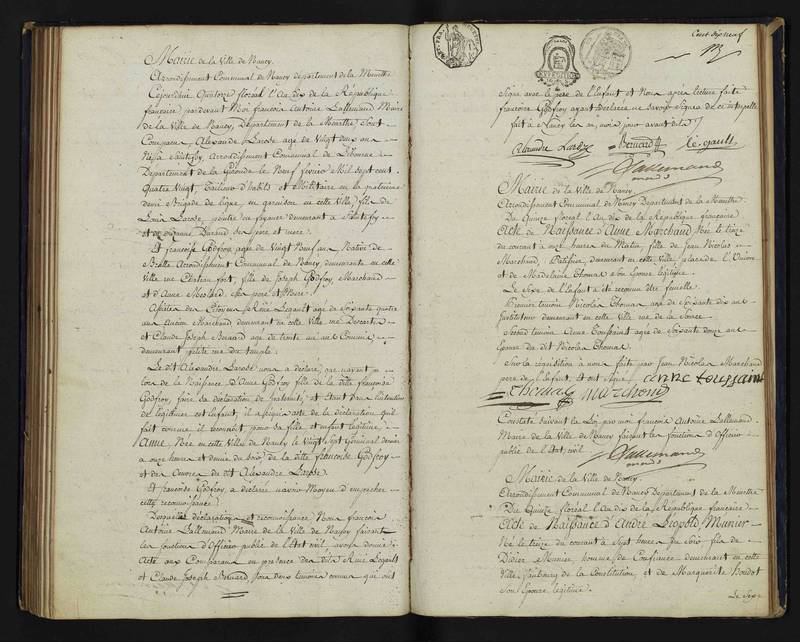 Mairie de la Ville de Nancy.
Arrondissement Communal de Nancy département de la Meurthe
Cejourd'hui Quinze floréal L'an dix de la République
française pardevant Moi françois Antoine Lallemand Maire
de la Ville de Nancy, Département de la Meurthe Sont
Comparu, Alexandre Larose agé de Vingt deux ans
Arrondissement Communal de Libourne
Département de la Gironde le Neuf février Mil Sept cent
Quatre Vingt, Tailleur d'habits et Militaire en la quatrième
demi Brigade de ligne, en garnison en cette Ville, fils de
Louis Larose, peintre en
et de Suzanne Durand Ses père et mere.
Et françoise Godfroy agée de Vingt Neuf ans Native de
Bratte Arrondissement Communal de Nancy demeurante en cette
Ville rue Chateau fort, fille de Joseph Godfroy Marchand
et d'Anne Ses père et Mere.
Assistés des Citoyens René Legault agé de Soixante quatre
ans Ancien Marchand demeurant en cette Ville rue Descartes
et Claude Joseph Bernard agé de trente un ans Commis
demeurant petite rue du temple.
Le dit Alexandre Larose nous a déclaré que n'ayant pu
lors de la Naissance d'Anne Godfroy fille de la dite françoise
Godfroy, faire Sa déclaration de paternité, et étant dans l'intention
de légitimer cet enfant, il a requis acte de la déclaration qu'il
fait comme il reconnoit pour Sa fille et enfant légitime,
Anne, Née en cette Ville de Nancy le Vingt Sept Germinal dernier
à onze heures et demie du Soir de la dite françoise Godfroy
et des Oeuvres du dit Alexandre Larose.
Et françoise Godfroy, a déclaré n'avoir Moyen d'empecher
cette reconnoissance.
Desquelles déclaration et reconnoissance Nous françois
Antoine Lallemand Maire de la Ville de Nancy faisant
les fonctions d'Officier public de l'Etat civil avons donné
Acte aux Comparans en présence des dits René Legault
et Claude Joseph Bernard, tous deux témoins connus qui ont
Cent dix neuf
Signé avec le père de l'Enfant et Nous après lecture faite
françoise Godfroy ayant déclaré ne Savoir Signer de ce interpellé
fait à Nancy les an, mois jour avant dits
Alexandre Larose Bernard Legault
Lallemand
Mairie de la Ville de Nancy.
Arrondissement Communal de Nancy Département de la Meurthe
Du Quinze floréal L'an dix de la République française
Acte de Naissance d'Anne Marchand Née le treize
du courant à onze heures du Matin, fille de Jean Nicolas
Marchand, Patissier, demeurant en cette Ville, place de l'Union
et de Madelaine Thomas Son Epouse légitime.
Le Sexe de l'Enfant a été reconnu être femelle.
Premier témoin Nicolas Thomas agé de Soixante dix ans
Instituteur demeurant en cette Ville rue de la Source
Second témoin Anne Toussaint agée de Soixante douze ans
Epouse du dit Nicolas Thomas.
Sur la réquisition à nous faite par Jean Nicolas Marchand
père de l'Enfant, et ont Signé anne toussaint
thomas marchand
Constaté Suivant la Loi par moi françois Antoine Lallemand
Maire de la Ville de Nancy faisant les fonctions d'Officier
public de l'état civil.
Lallemand
Mairie de la Ville de Nancy.
Arrondissement Communal de Nancy Département de la Meurthe
Du Quinze floréal L'an dix de la République française.
Acte de Naissance d'André Léopold Munier
Né le treize du courant à Sept heures du Soir fils de
Didier Munier homme de Confiance demeurant en cette
Ville, faubourg de la Constitution et de Marguerite Houdot
Son Epouse légitime.
Le Sexe